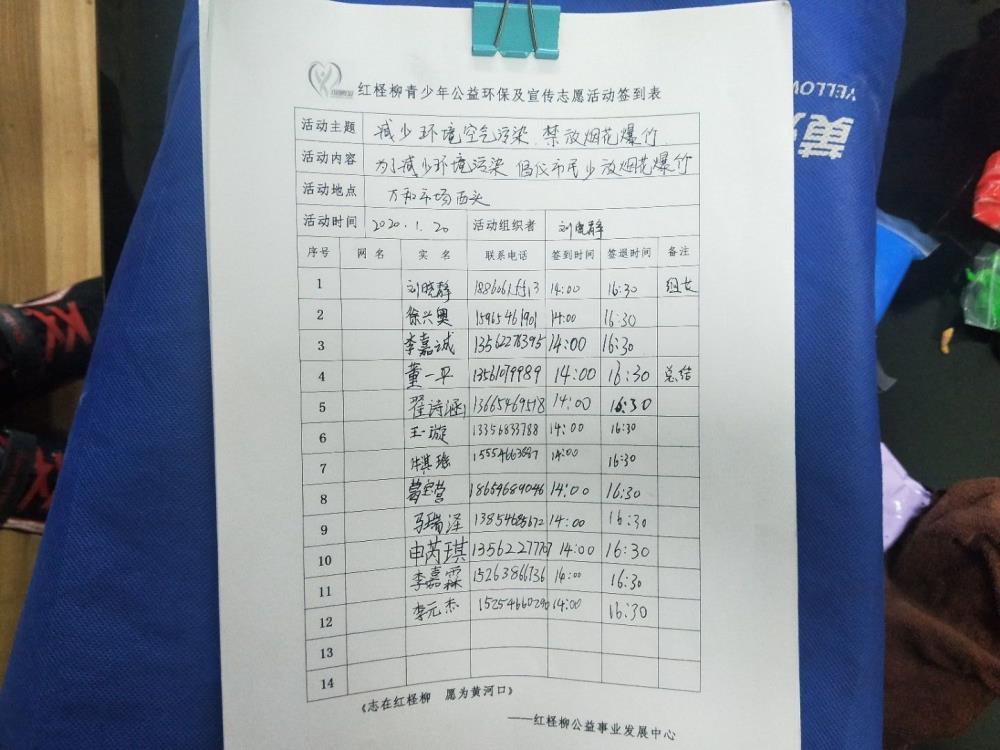 红柽柳青少年公益环保及宣传志愿活动签到表
活动主题 减少环境空气污染.禁放烟花爆竹
活动内容 为了减少环境污染 倡仪市民少放烟花爆竹
活动地点 万和市场西头
活动时间 2020.1.20 活动组织者 刘晓静
序号 网名 实名 联系电话 签到时间 签退时间 备注
1 刘晓静 14:00 16:30 组长
2 徐兴奥 15965461901 14:00 16:30
3 李嘉诚 13562278395 14:00 16:30
4 董一平 13561079989 14:00 16:30 总结
5 翟诗涵 13665469518 14:00 16:30
6 王璇 13356833788 14:00 16:30
7 14:00 16:30
8 葛宝营 18659689046 14:00 16:30
9 马瑞泽 13854685672 14:00 16:30
10 申芮琪 13562277707 14:00 16:30
11 李嘉霖 15263866736 14:00 16:30
12 李元杰 15254660290 14:00 16:30
13
14
《志在红柽柳 愿为黄河口》
——红柽柳公益事业发展中心
YELLOW
黄